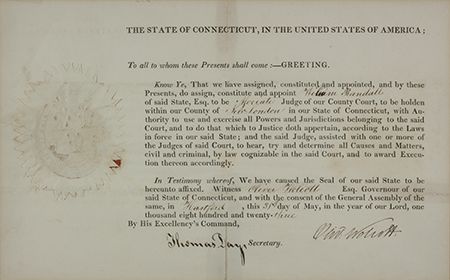 THE STATE OF CONNECTICUT, IN THE UNITED STATES OF AMERICA;
To all to whom these Presents shall come:—GREETING.
Know Ye, That we have assigned, constituted and appointed, and by these
Presents, do assign, constitute and appoint William Randall
of said State, Esq. to be Associate Judge of our County Court, to be holden
within our County of New London in our State of Connecticut, with Au-
thority to use and exercise all Powers and Jurisdictions belonging to the said
Court, and to do that which to Justice doth appertain, according to the Laws
in force in our said State; and the said Judge, assisted with one or more of
the Judges of said Court, to hear, try and determine all Causes and Matters,
civil and criminal, by law cognizable in the said Court, and to award Execu-
tion thereon accordingly.
In Testimony whereof, We have caused the Seal of our said State to be
hereunto affixed. Witness Oliver Wolcott Esq. Governour of our
said State of Connecticut, and with the consent of the General Assembly of the
same, in Hartford, this 31st day of May, in the year of our Lord, one
thousand eight hundred and twenty-
By His Excellency's Command,
Oliv Wolcott
Thomas Day, Secretary.